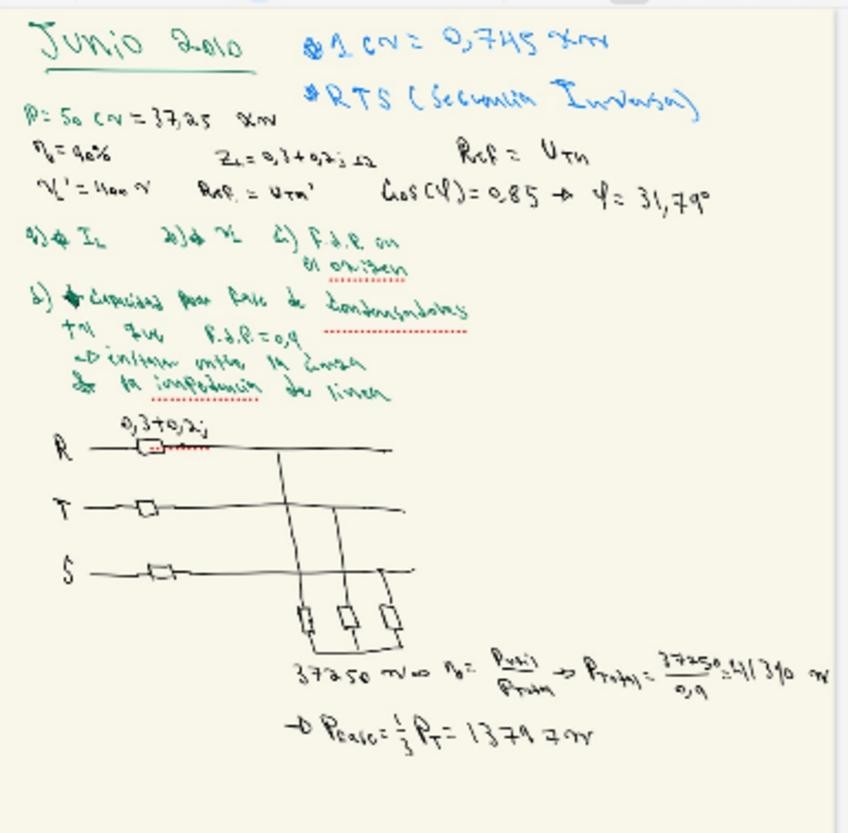 Junio 2010
* 1 CV = 0,745 kW
* RTS (Secuencia Inversa)
P = 50 CV = 37,25 kW
η = 90%
Z_L = 0,3+0,2j Ω
Ref = U_TN
V_L' = 400 V
Ref. = U_TN'
Cos(φ) = 0,85 → φ = 31,79°
a) I_L
b) V_L
c) F.d.P. en
el origen
d) Capacidad por fase de Condensadores
tal que F.d.P. = 0,9
→ instalar entre la Carga
la impedancia de línea
0,3+0,2j
R
T
S
37250 W → η = Putil/Ptotal → PTotal = 37250/0,9 = 41390 W
→ PFase = 1/3 PT = 13797 W